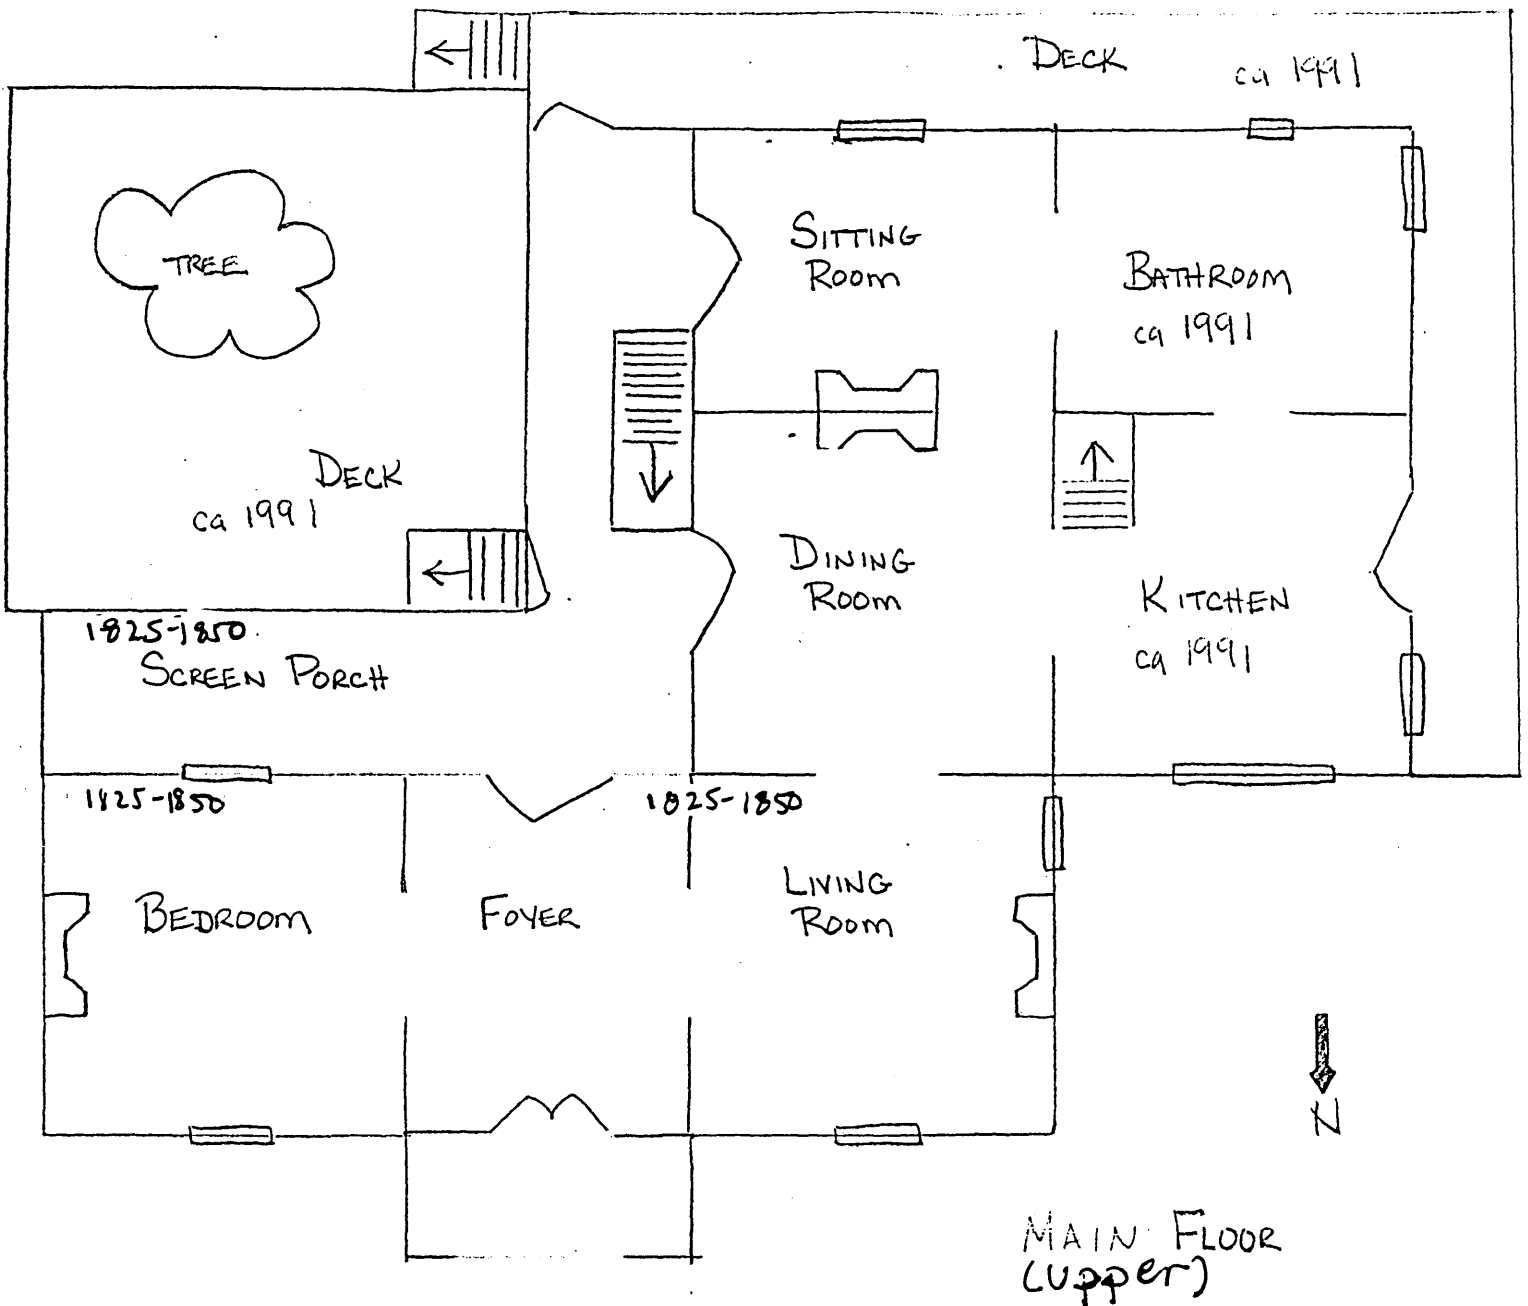 DECK
ca 1991
SITTING
ROOM
TREE
BATHROOM
ca 1991
DECK
ca 1991
DINING
ROOM
KITCHEN
ca 1991
1825-1850
SCREEN PORCH
1825-1850
1825-1850
BEDROOM
FOYER
LIVING
ROOM
N
MAIN FLOOR
(upper)